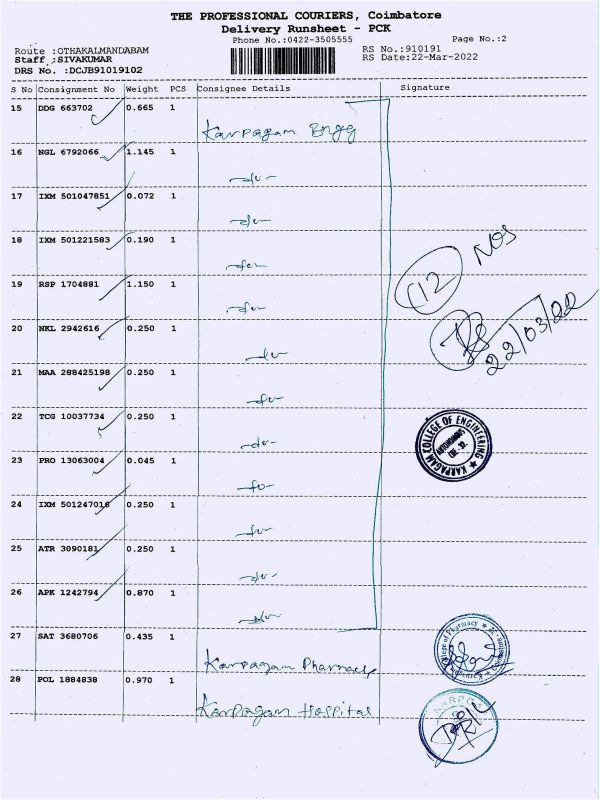 THE PROFESSIONAL COURIERS, Coimbatore
Delivery Runsheet - PCK
Phone No.:0422-3505555 Page No.:2
Route :OTHAKALMANDABAM RS No.:910191
Staff :SIVAKUMAR RS Date:22-Mar-2022
DRS No. :DCJB91019102
S No Consignment No Weight PCS Consignee Details Signature
15 DDG 663702 0.665 1
Karpagam Engg
16 NGL 6792066 1.145 1
-do-
17 IXM 501047851 0.072 1
-do-
18 IXM 501221583 0.190 1
-do-
19 RSP 1704881 1.150 1
-do-
12 NOS
20 NKL 2942616 0.250 1
-do-
22/03/22
21 MAA 288425198 0.250 1
-do-
22 TCG 10037734 0.250 1
-do-
KARPAGAM COLLEGE OF ENGINEERING
AUTONOMOUS
CBE - 32.
23 PRO 13063004 0.045 1
-do-
24 IXM 501247016 0.250 1
-do-
25 ATR 3090181 0.250 1
-do-
26 APK 1242794 0.870 1
-do-
27 SAT 3680706 0.435 1
Karpagam Pharmacy
College of Pharmacy
28 POL 1884838 0.970 1
Karpagam Hospital